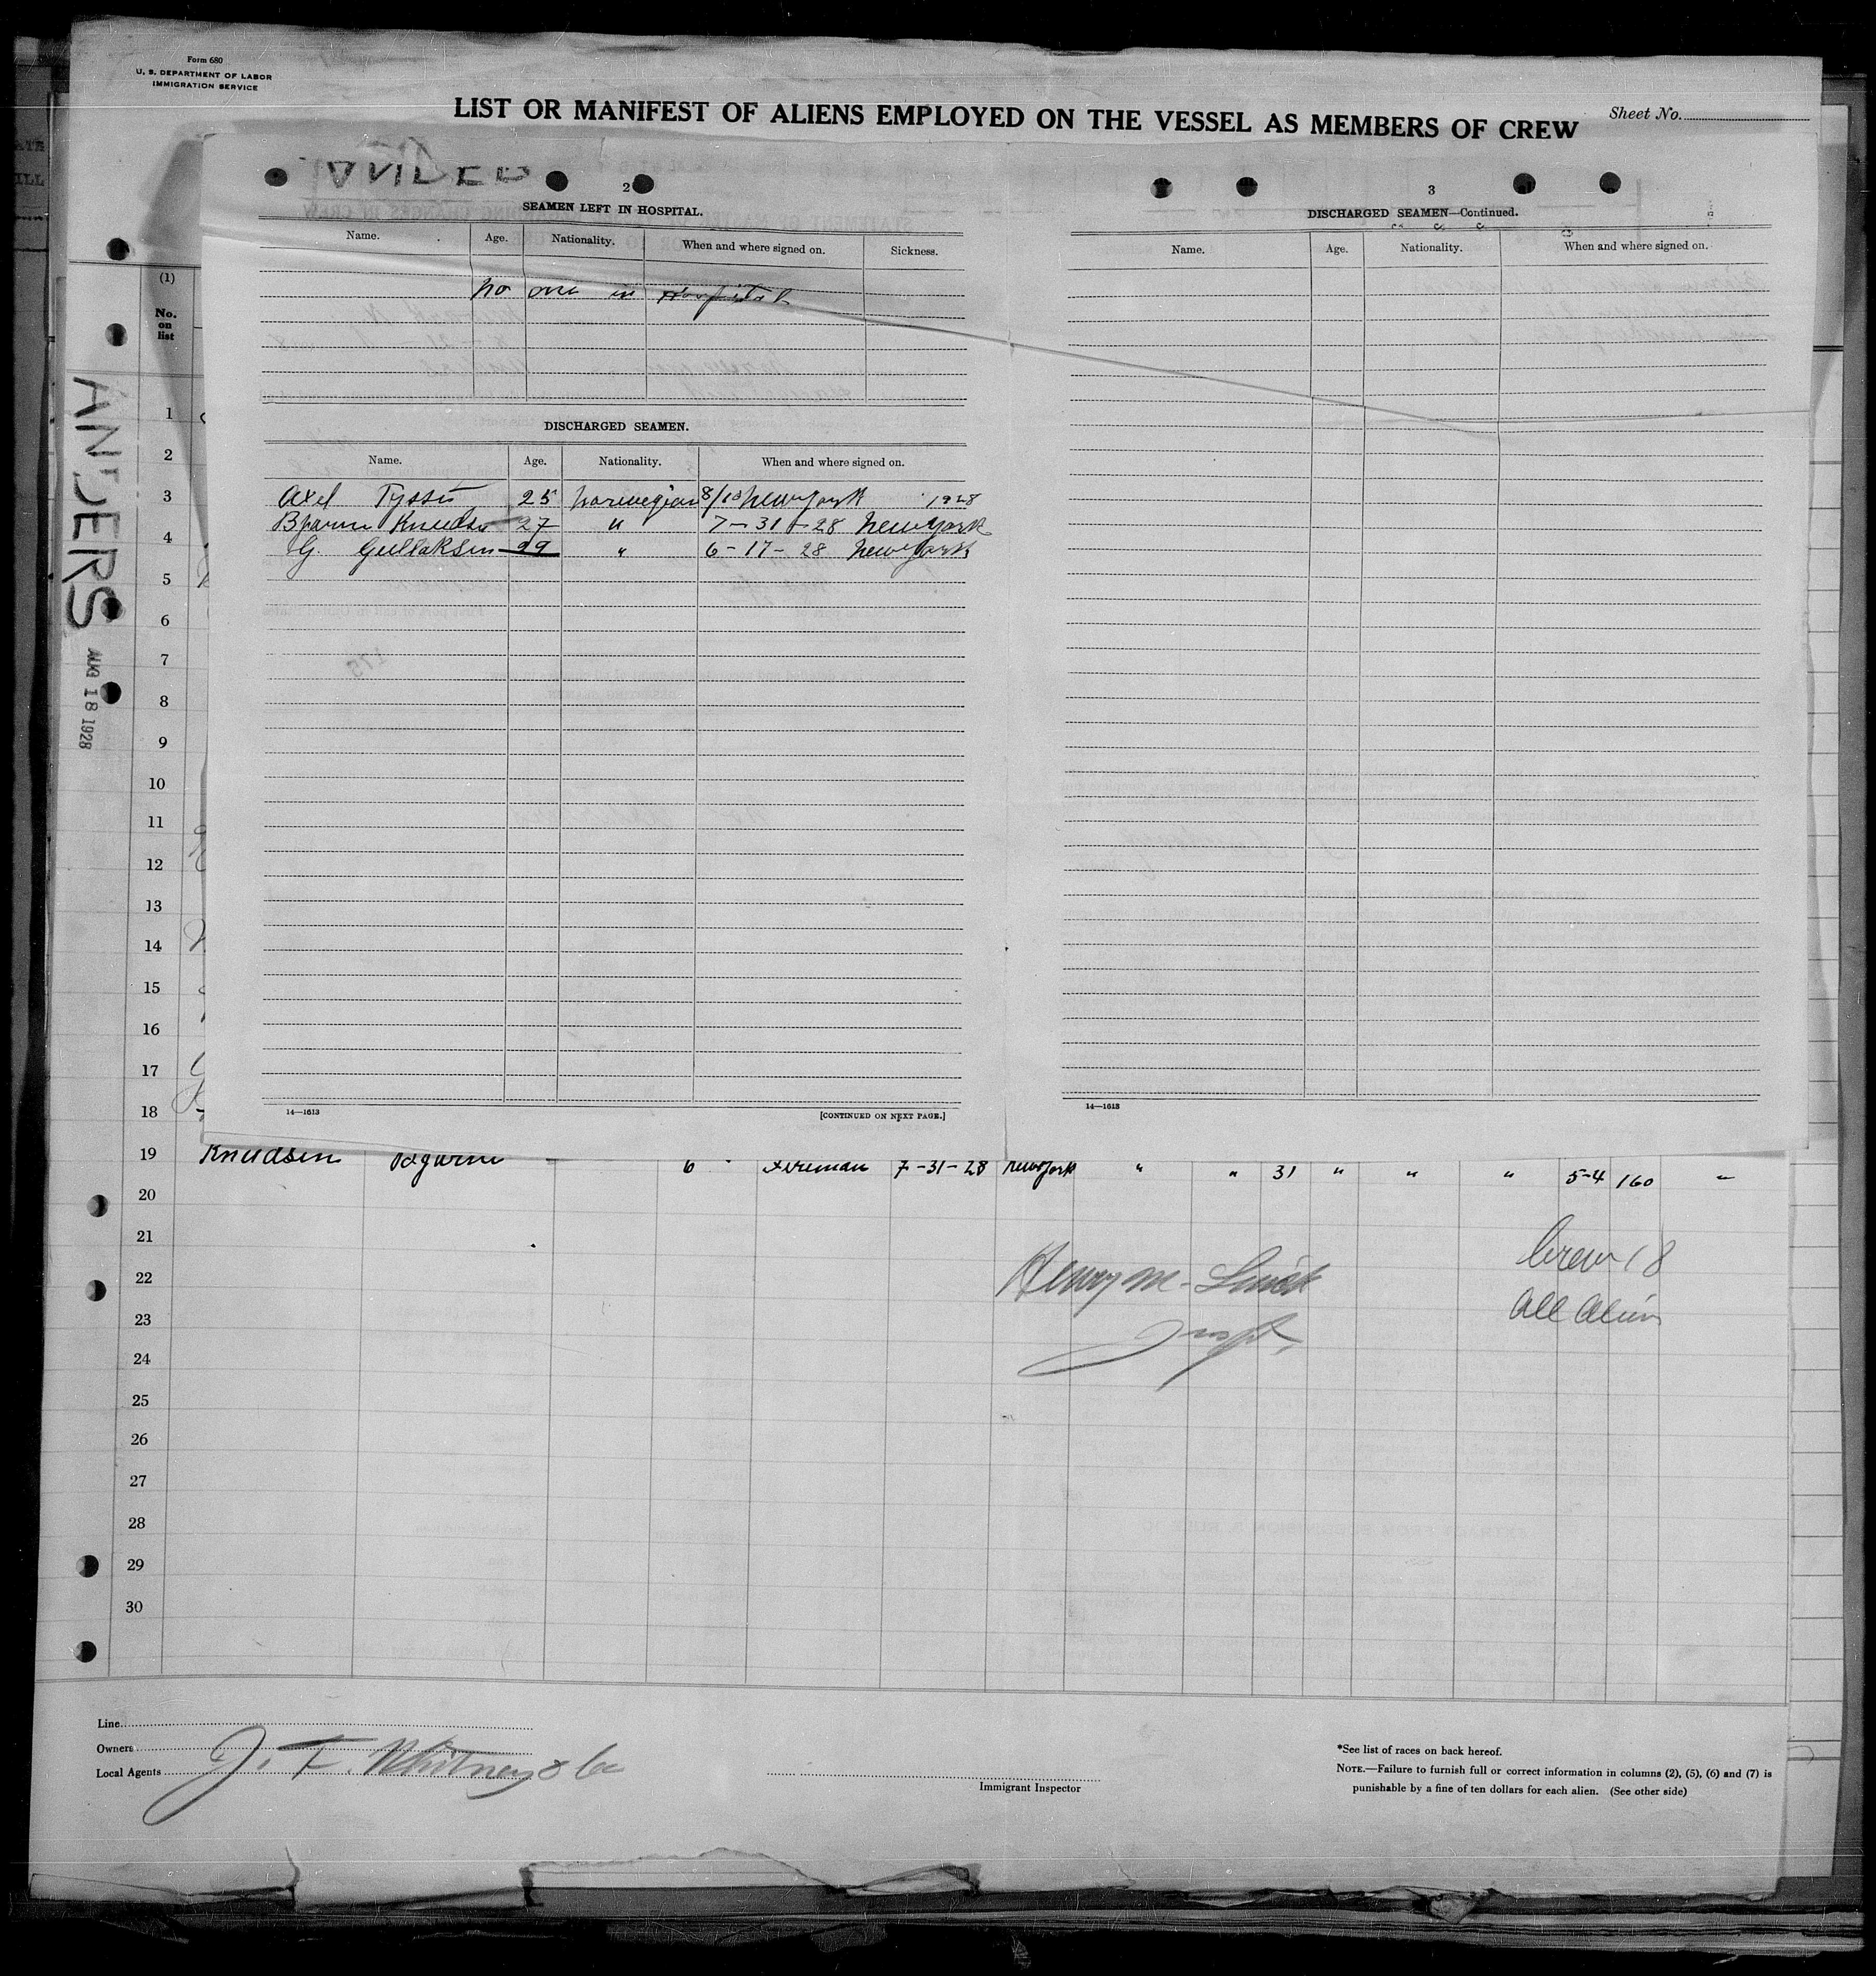 Form 680
U. S. DEPARTMENT OF LABOR
IMMIGRATION SERVICE
LIST OR MANIFEST OF ALIENS EMPLOYED ON THE VESSEL AS MEMBERS OF CREW
Sheet No.
2
SEAMEN LEFT IN HOSPITAL.
Name. Age. Nationality. When and where signed on. Sickness.
no one in Hospital
DISCHARGED SEAMEN.
Name. Age. Nationality. When and where signed on.
Axel 25 Norwegian 8/10 New York 1928
Bjarne Knudsen 27 " 7-31-28 New York
G. Gullaksen 29 " 6-17-28 New York
14—1613
[CONTINUED ON NEXT PAGE.]
3
DISCHARGED SEAMEN—Continued.
Name. Age. Nationality. When and where signed on.
14—1613
(1)
No.
on
list
ANDERS
AUG 18 1928
1
2
3
4
5
6
7
8
9
10
11
12
13
14
15
16
17
18
19 Knudsen Bjarne 6 Fireman 7-31-28 New York " " 31 " " " 5-4 160 "
20
21
22
23
24
25
26
27
28
29
30
Henry M.
Insp.
Crew 18
All Alien
Line
Owners
Local Agents
J. F. Whitney & Co
Immigrant Inspector
*See list of races on back hereof.
NOTE.—Failure to furnish full or correct information in columns (2), (5), (6) and (7) is
punishable by a fine of ten dollars for each alien. (See other side)